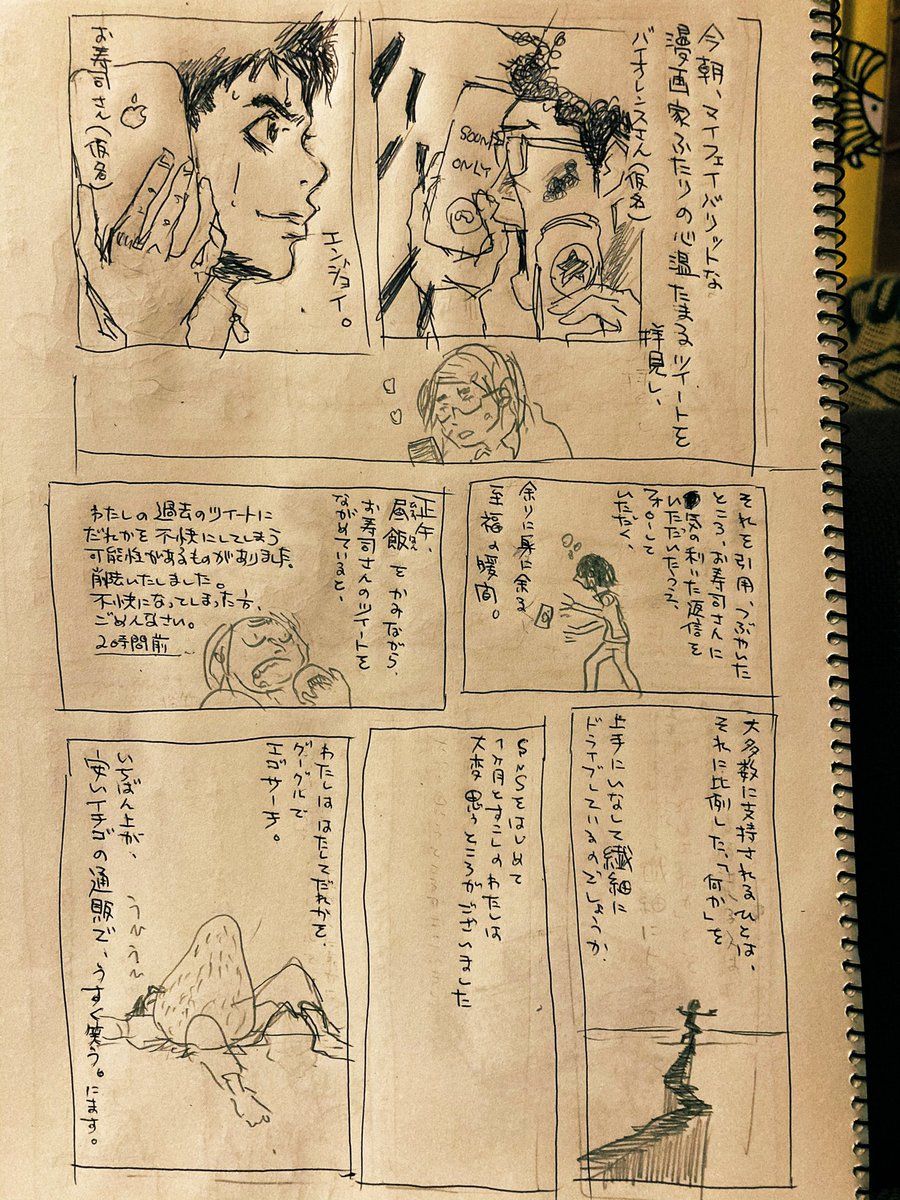 今朝、マイフェイバリットな
漫画家ふたりの心温たまるツイートを
拝見し、
バイオレンスさん(仮名)
SOON
ONLY
エンジョイ。
お寿司さん(仮名)
それを引用、つぶやいた
ところ、お寿司さんに
気の利いた返信を
いただいたうえ、
フォローして
いただく、
余りに身に余る
至福の瞬間。
正午、
昼飯をかみながら、
お寿司さんのツイートを
ながめていると、
わたしの過去のツイートに
だれかを不快にしてしまう
可能性があるものがあります。
削除いたしました。
不快になってしまった方、
ごめんなさい。
20時間前
大多数に支持されるひとは、
それに比例した、「何か」を
上手にいなして繊細に
ドライブしているのでしょうか、
SNSをはじめて
1ヶ月とすこしのわたしは
大変思うところがございました
わたしははたしてだれかを、
グーグルで
エゴサーチ。
いちばん上が、
安いイチゴの通販で、うすく笑う。にます。
うひうひ